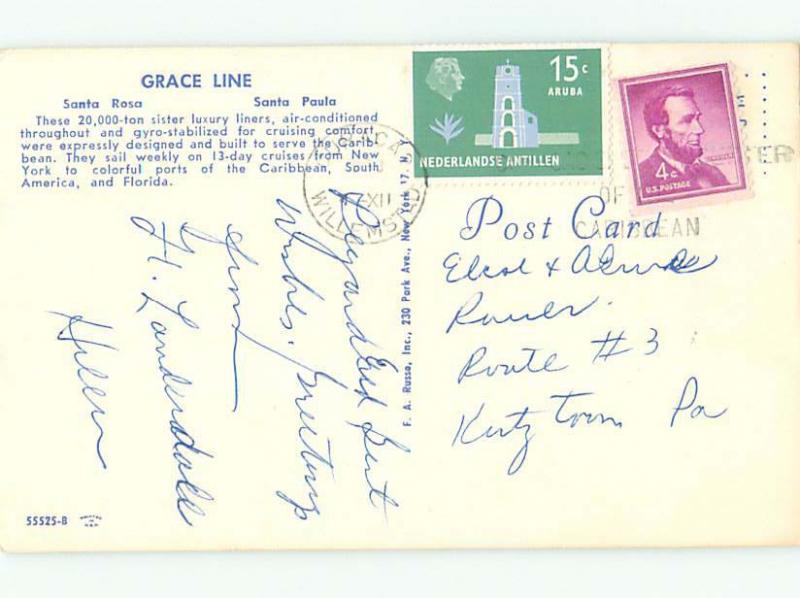 GRACE LINE
Santa Rosa Santa Paula
These 20,000-ton sister luxury liners, air-conditioned
throughout and gyro-stabilized for cruising comfort,
were expressly designed and built to serve the Carib-
bean. They sail weekly on 13-day cruises from New
York to colorful ports of the Caribbean, South
America, and Florida.
15 c
ARUBA
NEDERLANDSE ANTILLEN
4¢
U.S. POSTAGE
CURACAO
XII
WILLEMSTAD
OF
CARIBBEAN
Post Card
F. A. Russo, Inc., 230 Park Ave., New York 17, N.
Best
Wishes. Greetings
from
Ft. Lauderdale
Helen
&
Route #3
Kutztown Pa
55525-B